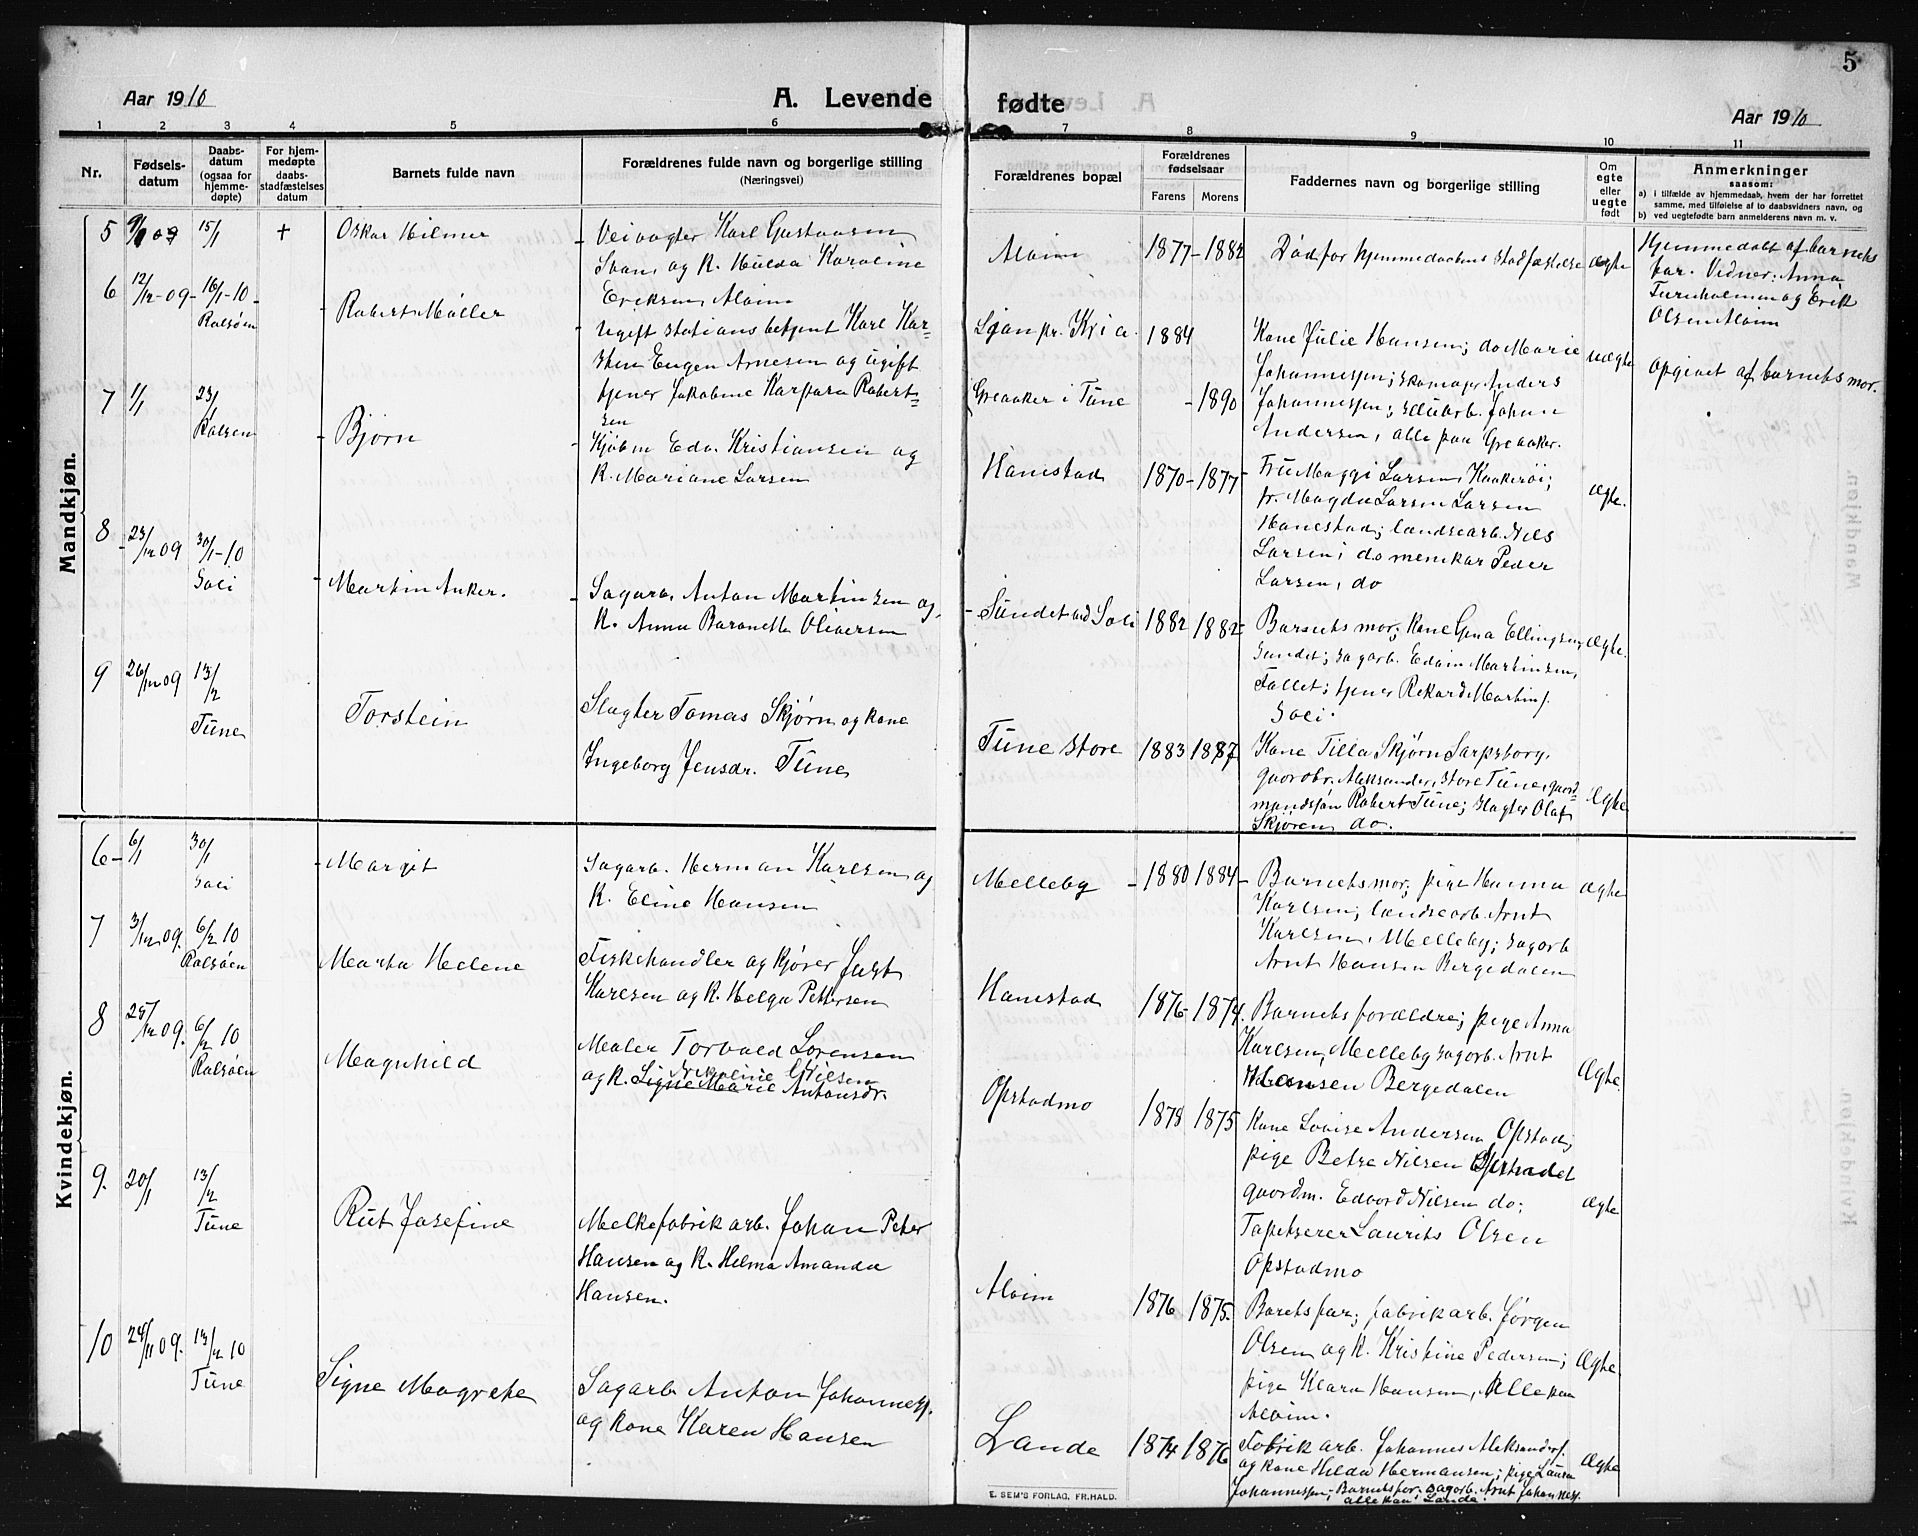 5
Aar 1910
A. Levende fødte
Aar 1910
1 2 3 4 5 6 7 8 9 10 11
Nr.
Fødsels-
datum
Daabs-
datum
(ogsaa for
hjemme-
døpte)
For hjem-
medøpte
daabs-
stadfæstelses
datum
Barnets fulde navn
Forældrenes fulde navn og borgerlige stilling
(Næringsvei)
Forældrenes bopæl
Forældrenes
fødselsaar
Farens Morens
Faddernes navn og borgerlige stilling
Om
egte
eller
uegte
født
Anmerkninger
saasom:
a) i tilfælde av hjemmedaab, hvem der har forrettet
samme, med tilføielse af to daabsvidners navn, og
b) ved uegtefødte barn anmelderens navn m. v.
Mandkjøn.
5
15/1
+
Oskar Hilmer
Veivogter Karl Gustavsen
og K. Hulda Karoline
Eriksen, Alvim
Alvim
1877 - 1882
Død før hjemmedaabens stadfæstelse
ægte
Hjemmedøbt af barnets
far. Vidner: Anna
og Erik
Olsen Alvim
6
12/12-09-
16/1-10
Rolsøen
Robert Møller
Ugift stationsbetjent Karl Kar-
sten Eugen Arnesen og ugift
tjener Jakobine Kaspara Robert-
sen
Ljan pr. Kria.
Greaaker i Tune
1884
- 1890
Kone Julie Hansen; do Marie
Johannessen; skomager Anders
Johannessen; Johan
Andersen, alle paa Greaaker.
uægte
Opgivet af barnets mor.
7
1/1
23/1
Rolsøen
Bjørn
Kjøbm. Edv. Kristiansen og
K. Mariane Larsen
Hanestad
1870 - 1877
Fru Maggi Larsen,
fr. Magda Larsen Larsen
Hanestad; landsearb. Nils
Larsen; do menikar Peder
Larsen, do
Ægte.
8
23/12 09
30/1-10
Soli
Martin Anker.
Sagarb. Anton Martinsen og
K. Anna Baranette Oliversen
Sundet ved Soli
1882 1882
Barnets mor; Kone Gina Ellingsen,
Sundet; sagarb. Edvin Martinsen,
Fallet; tjener Rekard Martins.
Soli.
Ægte.
9
26/12 09
13/2
Tune
Torstein
Slagter Tomas Skjørn og kone
Ingeborg Jensdr. Tune
Tune store
1883 1887
Kone Tilla Skjørn Sarpsborg,
gaardbr. Aleksander, store Tune, gaard-
mandssøn Robert Tune; slagter Olaf
Skjøren do.
Ægte
Kvindekjøn.
6
6/1
30/1
Soli
Margit
Sagarb. Herman Karlsen og
K. Eline Hansen
Melleby
- 1880 1884 -
Barnets mor; pige Hanna
Karlsen; landsearb. Arnt
Karlsen, Melleby; sagarb
Arnt Hansen Bergedalen
ægte
7
3/12 09.
6/2 10
Rolsøen
Marta Helene
Fiskehandler og kjører Just
Karlsen og K. Helga Pettersen
Hanestad
1876 - 1874.
Barnets forældre; pige Anna
Karlsen, Melleby sagarb. Arnt
Hansen Bergedalen
Ægte.
8
25/12 09.
6/2 10
Rolsøen
Magnhild
Maler Torvald Lorensen
og K. Signe Marie Antonsdr.
Nikoline Nilsen
Opstadmo
1878 1875
Kone Lovise Andersen Opstad;
pige Betze Nilsen Opstadet
gaardm. Edvard Nilsen do;
Tapetserer Laurits Olsen
Opstadmo
Ægte
9.
20/1
13/2
Tune
Rut Josefine
Melkefabrikarb. Johan Peter
Hansen og K. Hilma Amanda
Hansen.
Alvim
1876 1875.
Barnets far; fabrikarb. Jørgen
Olsen og K. Kristine Pedersen;
pige Klara Hansen, Alle paa
Alvim.
Ægte
10
24/11 09.
13/2 10
Tune
Signe Magrete
Sagarb Anton Johanness.
og kone Karen Hansen
Lande
1874 1876
Fabrikarb. Johannes Aleksanders.
og kone Hilda Hermansen; pige Laura
Johannessen; Barnets far; sagarb. Arnt Johanness.
alle paa Lande.
Ægte
E. SEM'S FORLAG, FR.HALD.